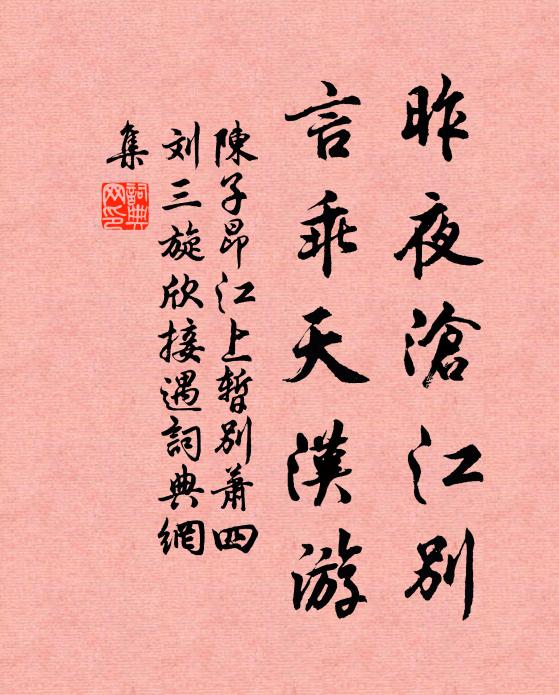 昨夜滄江別
言乘天漢游
陳子昂江上暫別蕭四
刘三旋欣接遇詞典網
集
詞典网印